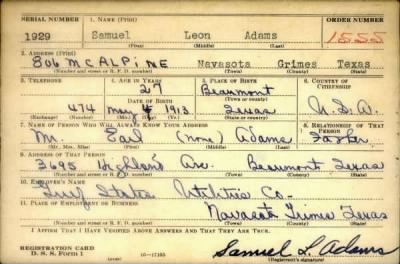 SERIAL NUMBER 1. NAME (Print) ORDER NUMBER
1929 Samuel Leon Adams 1555
(First) (Middle) (Last)
2. ADDRESS (Print)
806 McALPINE Navasota Grimes Texas
(Number and street or R. F. D. number) (Town) (County) (State)
3. TELEPHONE 4. AGE IN YEARS 5. PLACE OF BIRTH 6. COUNTRY OF CITIZENSHIP
27 Beaumont
DATE OF BIRTH (Town or county)
474 May 4 1913 Texas U.S.A.
(Exchange) (Number) (Mo.) (Day) (Yr.) (State or country)
7. NAME OF PERSON WHO WILL ALWAYS KNOW YOUR ADDRESS 8. RELATIONSHIP OF THAT PERSON
Mr. Earl (none) Adams Father
(Mr., Mrs., Miss) (First) (Middle) (Last)
9. ADDRESS OF THAT PERSON
3695 Highland Ave. Beaumont Texas
(Number and street or R. F. D. number) (Town) (County) (State)
10. EMPLOYER'S NAME
Gulf States Utilities Co.
11. PLACE OF EMPLOYMENT OR BUSINESS
Navasota Grimes Texas
(Number and street or R. F. D. number) (Town) (County) (State)
I AFFIRM THAT I HAVE VERIFIED ABOVE ANSWERS AND THAT THEY ARE TRUE.
REGISTRATION CARD
D. S. S. Form 1 16—17105 Samuel L. Adams
(Registrant's signature)